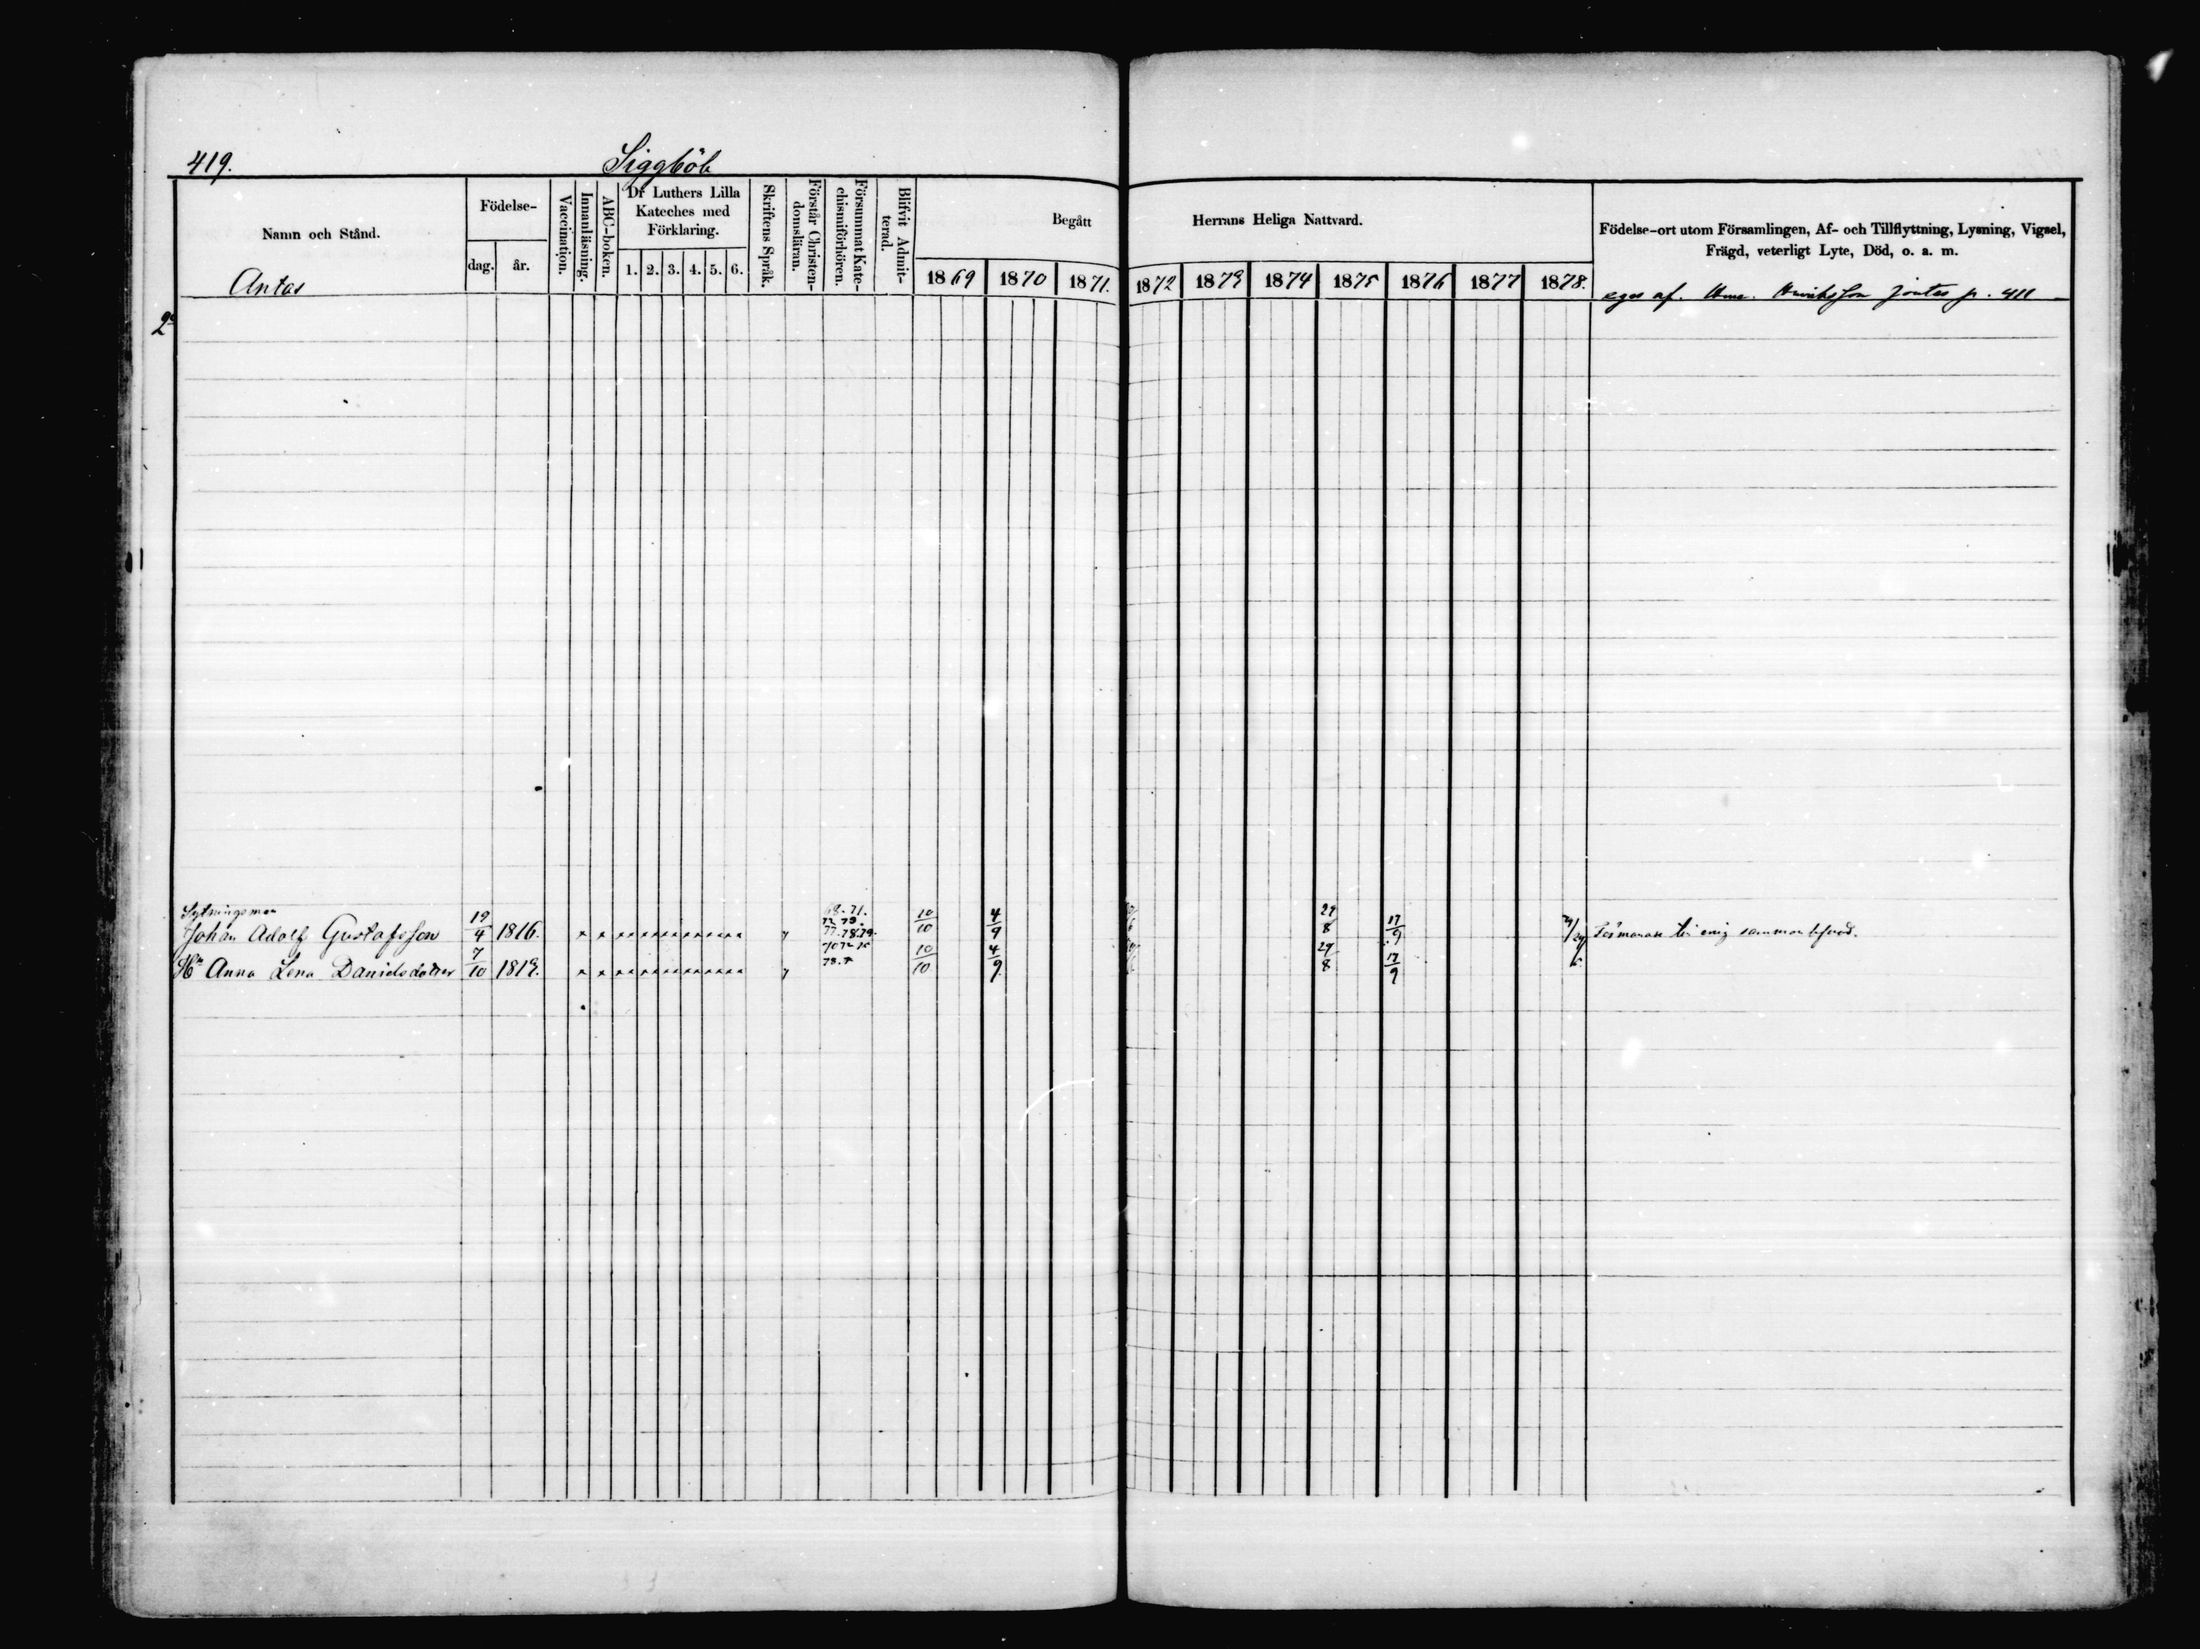 419. Siggböle
Namn och Stånd. Födelse- dag. år. Vaccination. Innanläsning. ABC-boken. Dr Luthers Lilla Kateches med Förklaring. 1. 2. 3. 4. 5. 6. Skriftens Språk. Förstår Christen-domsläran. Försummat Kate-chismiförhören. Blifvit Admit-terad. Begått Herrans Heliga Nattvard. Födelse-ort utom Församlingen, Af- och Tillflyttning, Lysning, Vigsel, Frägd, veterligt Lyte, Död, o. a. m.
1869 1870 1871. 1872 1873 1874 1875 1876 1877 1878.
Antas eges af. Henriksson p. 411
2
Sytningsman 68. 71.
Johan Adolf Gustafsson 19/4 1816. 77. 78. 79. 10/10 4/9 29/8 17/9 Förmanas till enig sammanlefnad.
Hu Anna Lena Danielsdotter 7/10 1819. 10/10 4/9 29/8 17/9